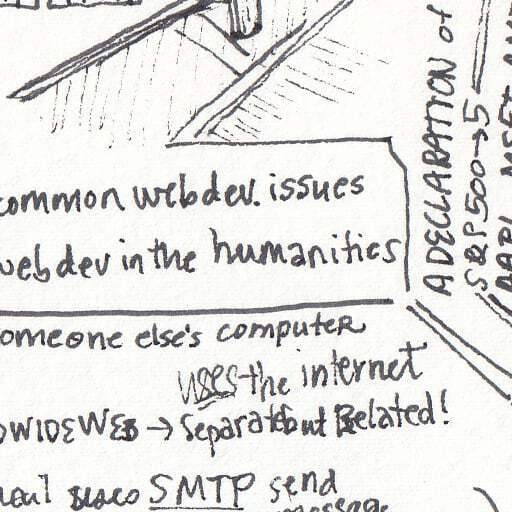 common webdev. issues
webdev in the humanities
someone else's computer
uses the internet
WIDE WEB → separate but Related!
SMTP send
message
A DECLARATION of
S&P 500→5